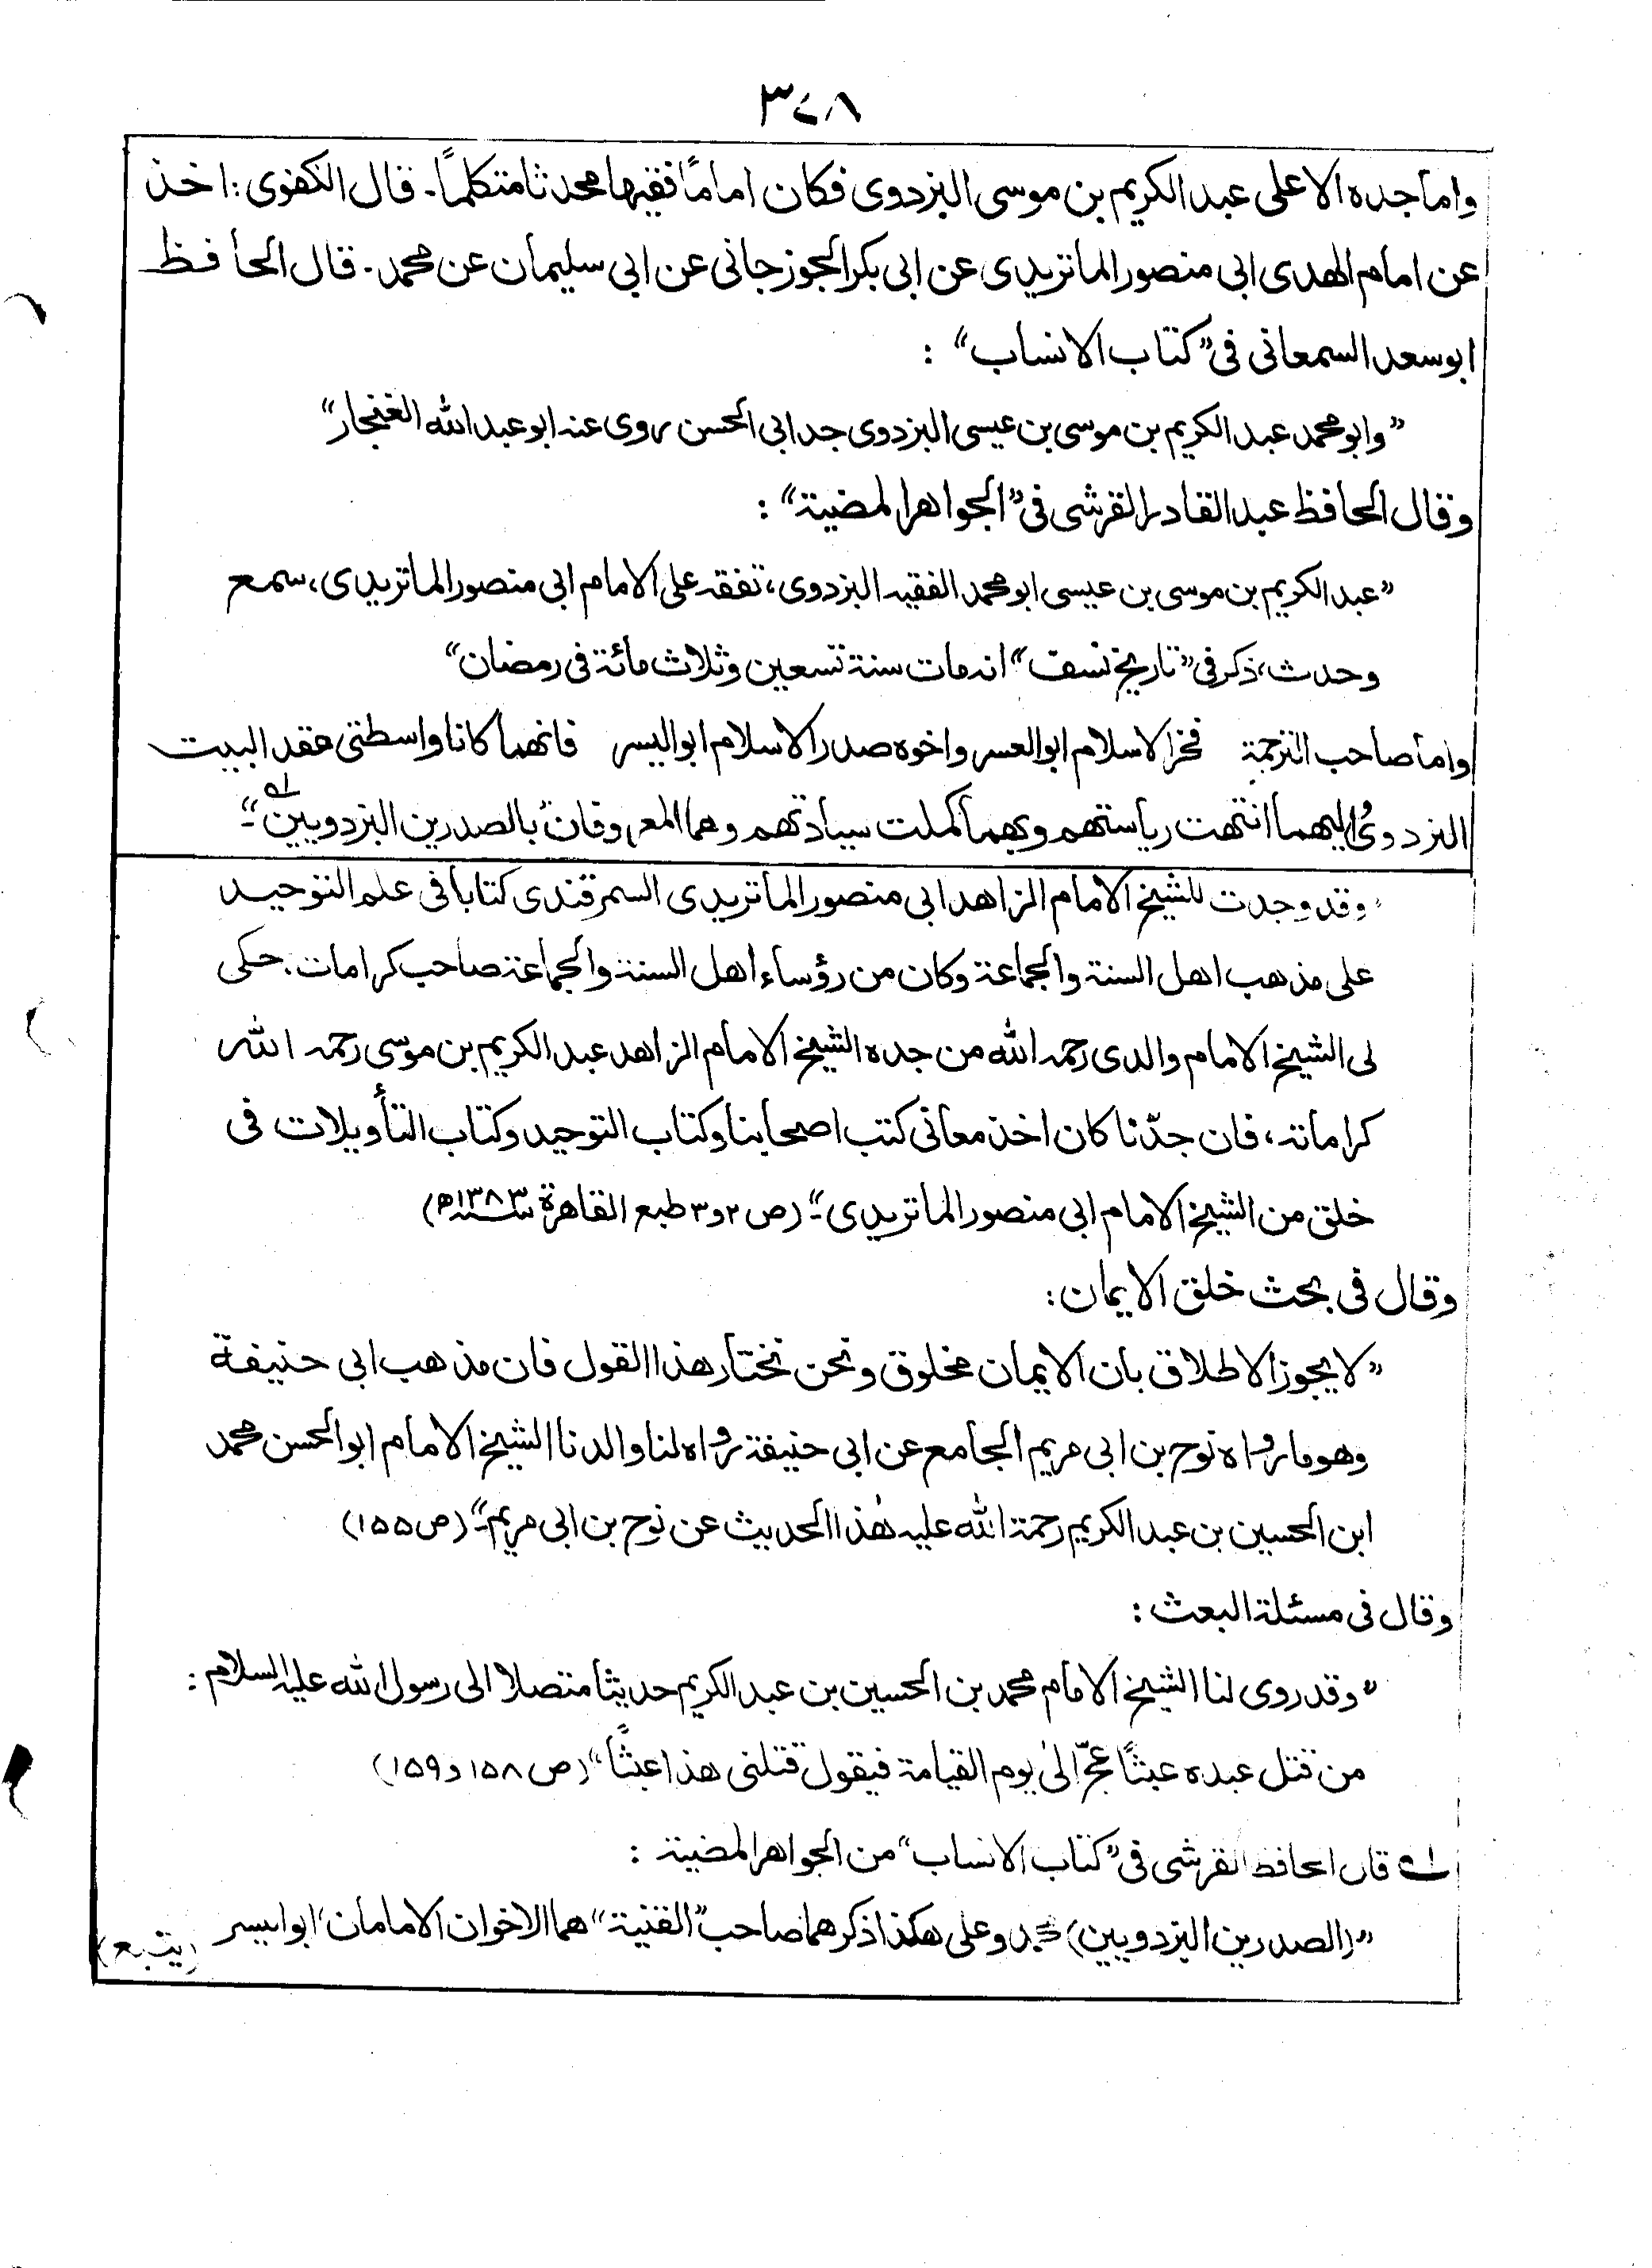 ٣٤٨
واما جده الاعلى عبد الكريم بن موسى البزدوى فكان اماماً فقيها محدثا متكلماً۔ قال الكفوى: اخذ
عن امام الهدى ابى منصور الماتريدى عن ابى بكر الجوزجانى عن ابى سليمان عن محمد۔ قال الحافظ
ابو سعد السمعانى فى "كتاب الانساب" :
"وابو محمد عبد الكريم بن موسى بن عيسى البزدوى جد ابى الحسن روى عنه ابو عبد الله الغنجار"
وقال الحافظ عبد القادر القرشى فى "الجواهر المضية" :
"عبد الكريم بن موسى بن عيسى ابو محمد الفقيه البزدوى، تفقه على الامام ابى منصور الماتريدى، سمع
وحدث، ذكر فى "تاريخ نسف" انه مات سنة تسعين وثلاث مائة فى رمضان"
واما صاحب الترجمة فخر الاسلام ابو العسر واخوه صدر الاسلام ابو اليسر فانهما كانا واسطتى عقد البيت
البزدوىُ اليهما انتهت رياستهم وبهما كملت سيادتهم وهما المعروفان بالصدرين البزدويين"۔ له
وقد وجدت للشيخ الامام الزاهد ابى منصور الماتريدى السمرقندى كتابا فى علم التوحيد
على مذهب اهل السنة والجماعة وكان من رؤساء اهل السنة والجماعة صاحب كرامات. حكى
لى الشيخ الامام والدى رحمه الله من جده الشيخ الامام الزاهد عبد الكريم بن موسى رحمه الله
كراماته، فان جدّنا كان اخذ معانى كتب اصحابنا وكتاب التوحيد وكتاب التأويلات فى
خلق من الشيخ الامام ابى منصور الماتريدى"۔ (ص ٢ و ٣ طبع القاهرة سنة ١٣٨٣ھ)
وقال فى بحث خلق الايمان:
"لا يجوز الاطلاق بان الايمان مخلوق ونحن نختار هذا القول فان مذهب ابى حنيفة
وهو ما رواه نوح بن ابى مريم الجامع عن ابى حنيفة رواه لنا والدنا الشيخ الامام ابو الحسن محمد
ابن الحسين بن عبد الكريم رحمة الله عليه هٰذا الحديث عن نوح بن ابى مريم"۔ (ص ١٥٥)
وقال فى مسئلة البعث :
"وقد روى لنا الشيخ الامام محمد بن الحسين بن عبد الكريم حديثا متصلا الى رسول الله عليه السلام :
من قتل عبده عبثًا عجّ الىٰ يوم القيامة فيقول قتلنى هذا عبثًا" (ص ١٥٨ و ١٥٩)
له قال الحافظ القرشى فى "كتاب الانساب" من الجواهر المضية :
"(الصدرين البزدويين) محمد وعلى هكذا ذكرهما صاحب "القنية" هما الاخوان الامامان، ابو اليسر (يتبع)